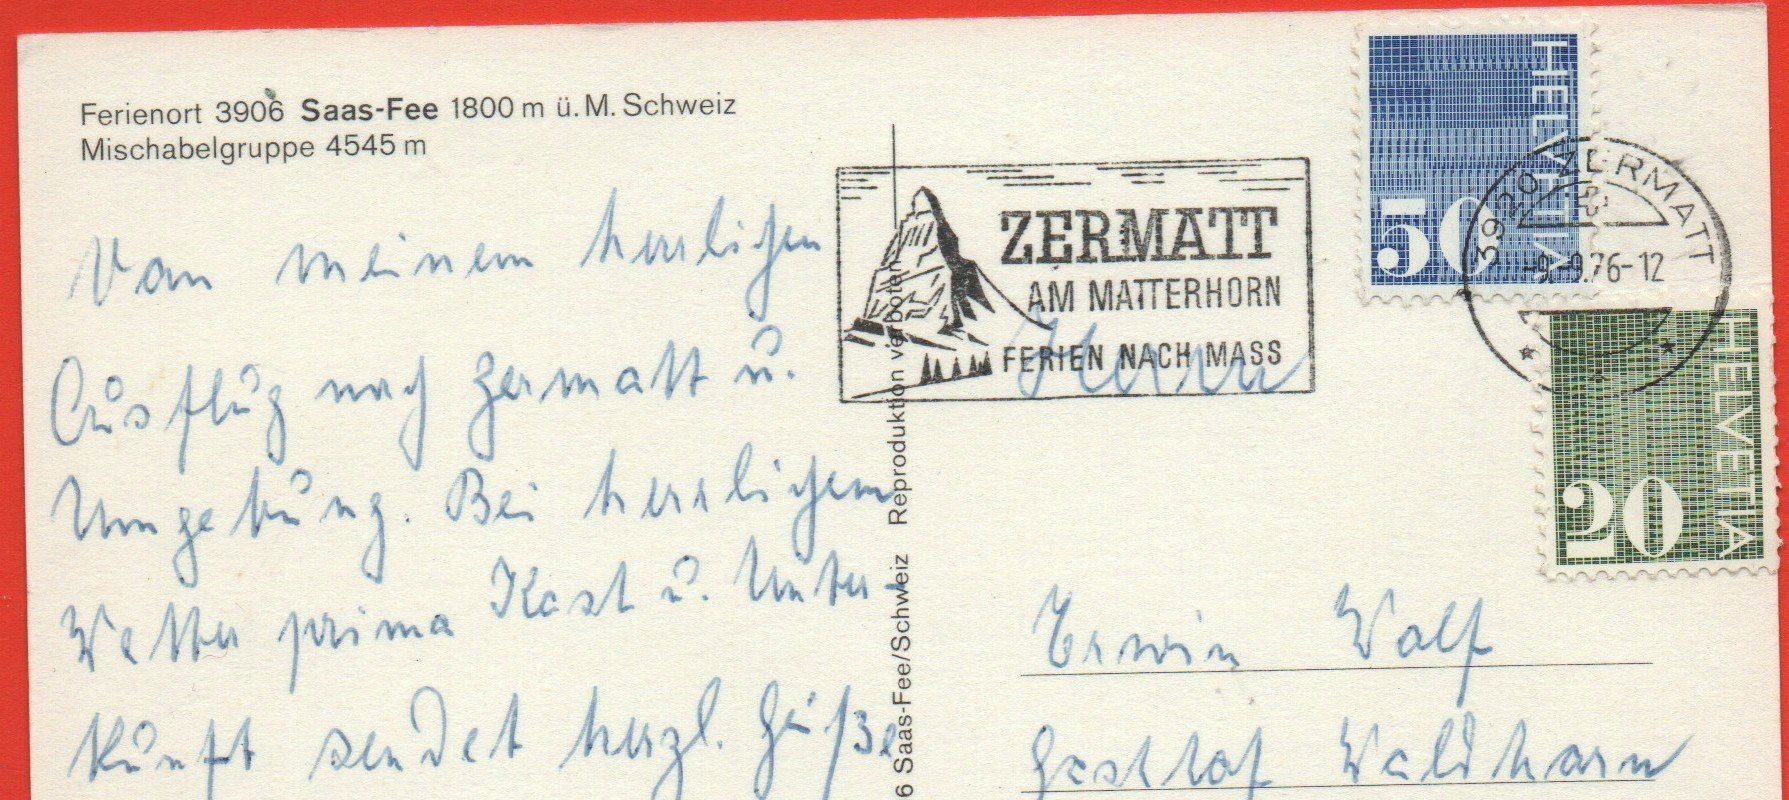 Ferienort 3906 Saas-Fee 1800 m ü. M. Schweiz
Mischabelgruppe 4545 m
Von meinem herrlichen
Ausflug nach Zermatt u.
Umgebung. Bei herrlichem
Wetter prima Kost u. Unter-
kunft sendet herzl. Grüße
6 Saas-Fee/Schweiz Reproduktion verboten
ZERMATT
AM MATTERHORN
FERIEN NACH MASS
HELVETIA
50
3920 ZERMATT
-9.-9.76-12
HELVETIA
20
Herrn
Erwin Wolf
Gasthof Waldhorn